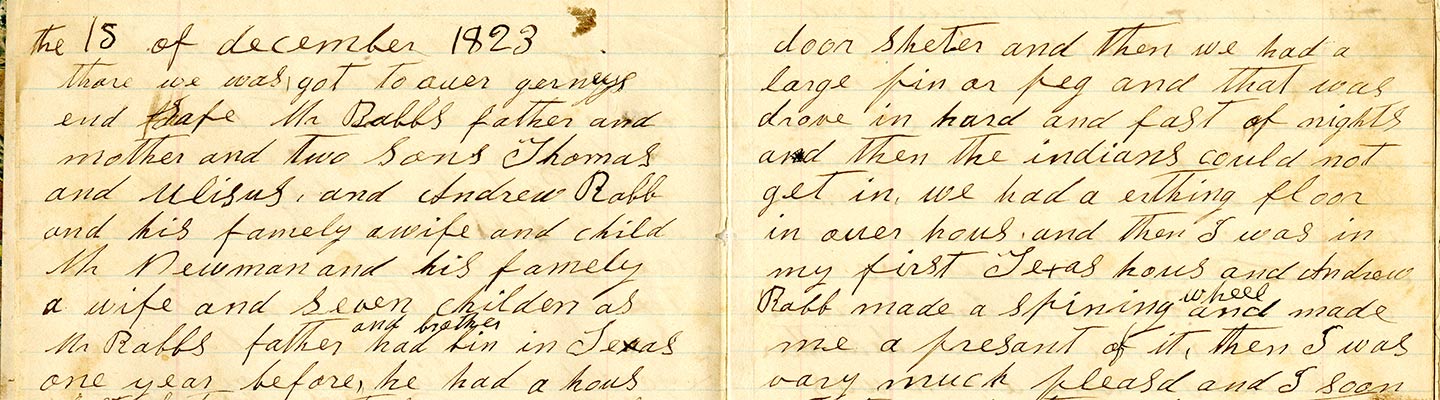 the 15 of december 1823
thare we was got to ouer gerneys
end safe Mr Rabbs father and
mother and two sons Thomas
and Ulisus, and Andrew Rabb
and his famely a wife and child
Mr Newman and his famely
a wife and seven childen as
and brother
Mr Rabbs father had bin in Texas
one year before, he had a hous
door sheter and then we had a
large pin or peg and that was
drove in hard and fast of nights
and then the indians could not
get in, we had a erthing floor
in ouer hous, and then I was in
my first Texas hous and Andrew
wheel
Rabb made a spining and made
me a presant of it, then I was
vary much pleasd and I soon